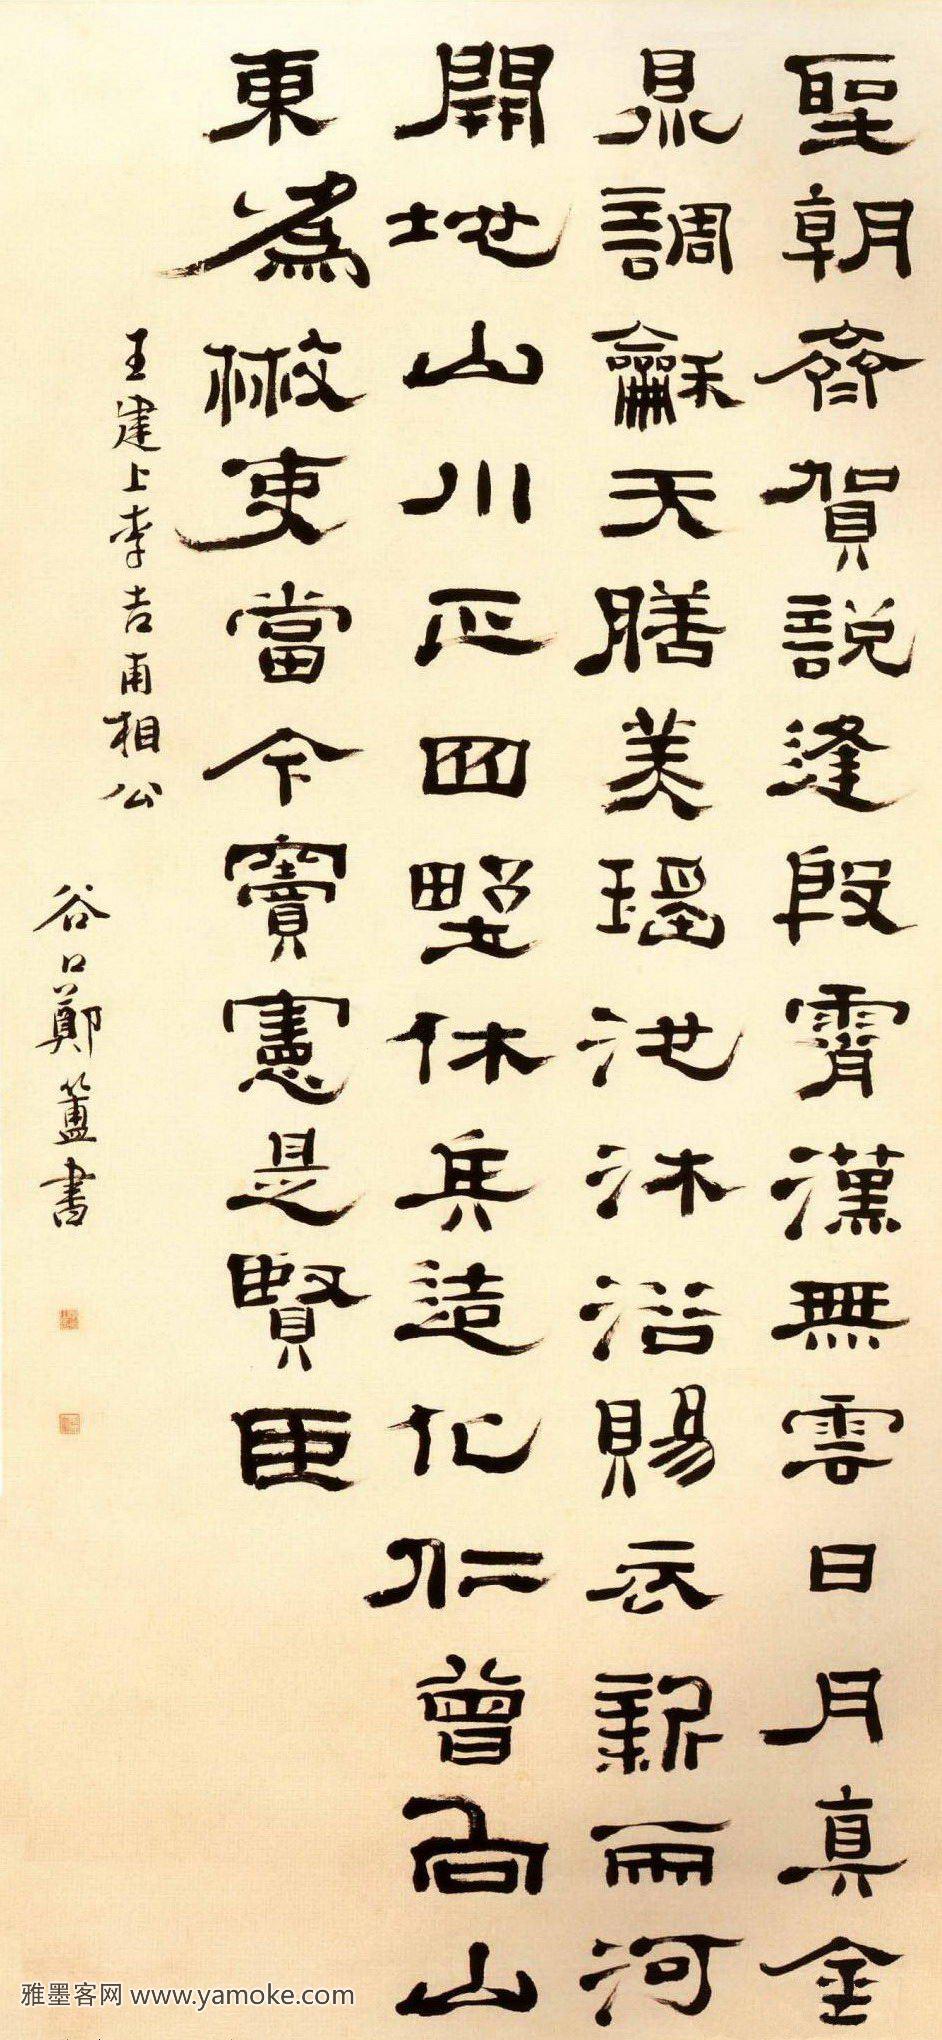 聖朝齊賀說逢殷霄漢無雲日月真金
鼎調龢天膳美瑤池沐浴賜衣新兩河
開地山川正四野休兵造化仁曾向山
東為散吏當今竇憲是賢臣
王建上李吉甫相公
谷口鄭簠書
雅墨客网 www.yamoke.com